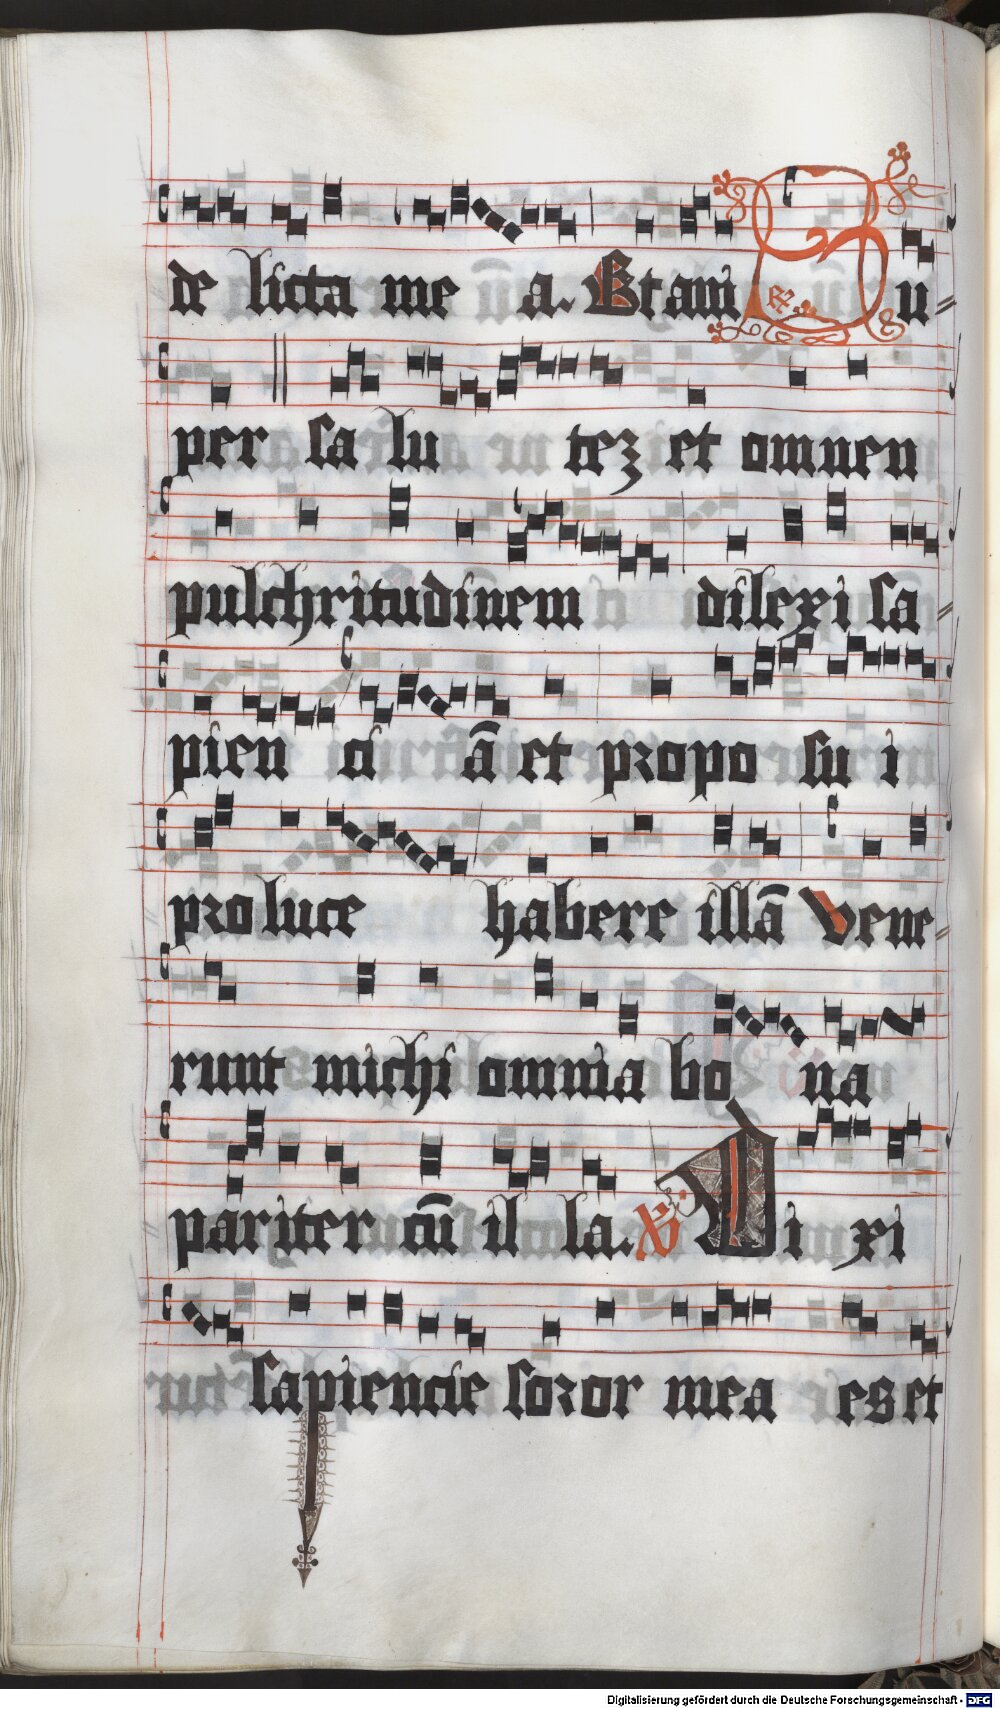 de licta me a. Et am Su=
per sa lu tez et omnen
pulchritudinem dilexi sa=
pien ci ā et propo su i
pro luce habere illā vene=
runt michi omnia bo na
pariter cū il la. V Di xi
sapiencie soror mea es et
Digitalisierung gefördert durch die Deutsche Forschungsgemeinschaft - DFG